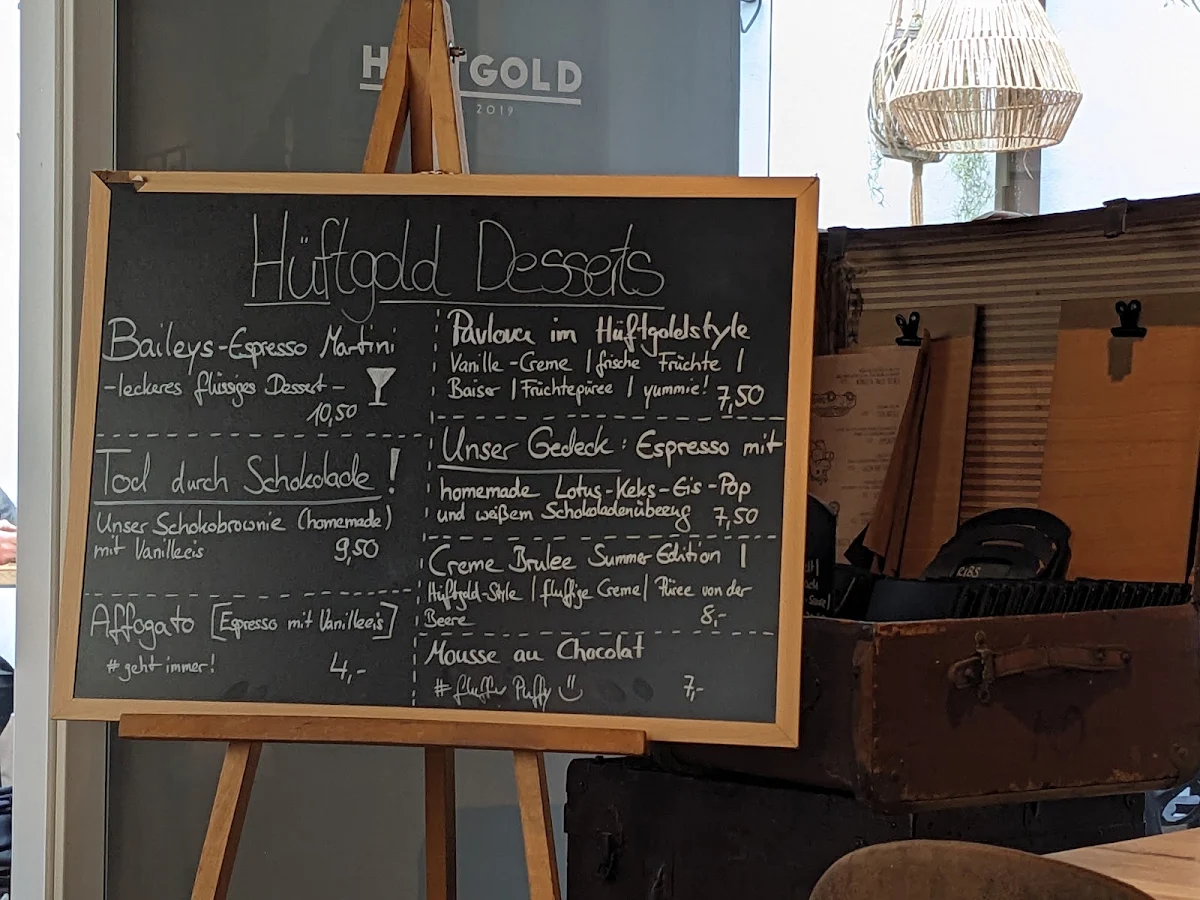 GOLD
2019
Hüftgold Desserts
Baileys-Espresso Martini
-leckeres flüssiges Dessert-
10,50
Tod durch Schokolade!
Unser Schokobrownie (homemade)
mit Vanilleeis 9,50
Affogato [Espresso mit Vanilleeis]
#geht immer! 4,-
Pavlova im Hüftgoldstyle
Vanille-Creme | frische Früchte |
Baiser | Früchtepüree | yummie! 7,50
Unser Gedeck: Espresso mit
homemade Lotus-Keks-Eis-Pop
und weißem Schokoladenüberzug 7,50
Creme Brulee Summer Edition |
Hüftgold-Style | fluffige Creme | Püree von der
Beere 8,-
Mousse au Chocolat
#fluffy Puffy 7,-